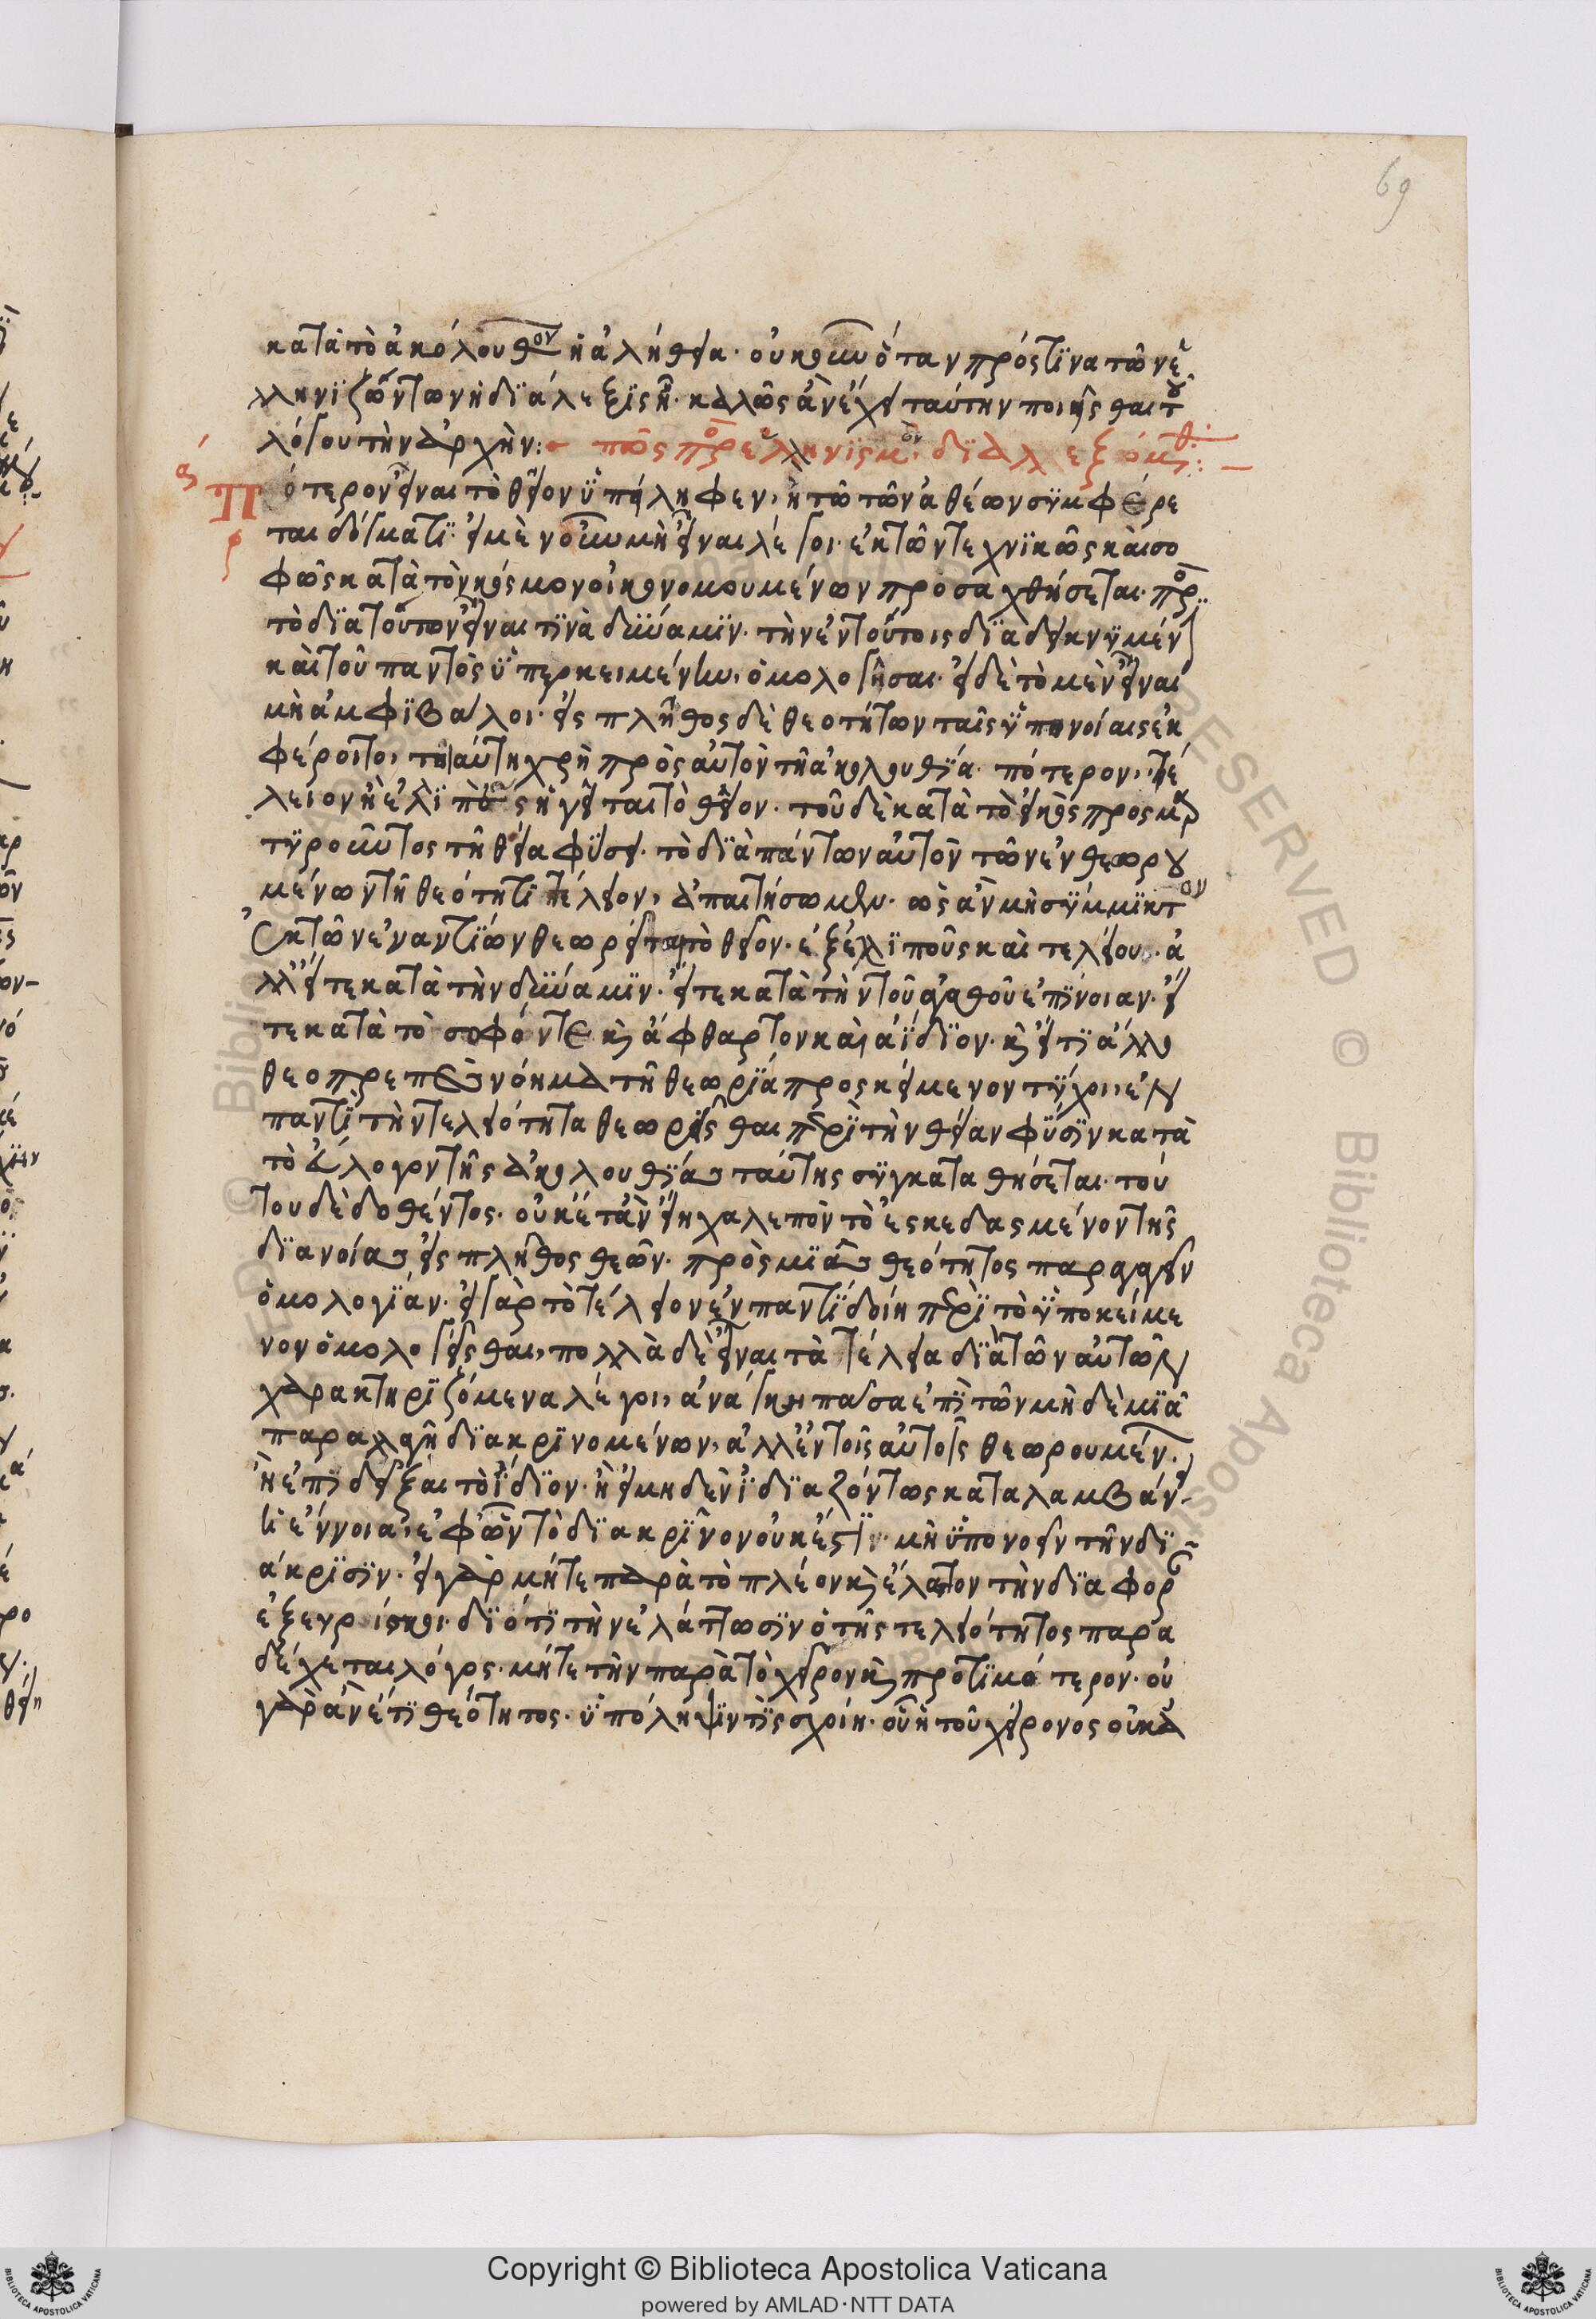 69
κατὰ τὸ ἀκόλουθον ἡ ἀλήθεια· οὐκοῦν ὅταν πρός τϊνα τῶν ἑ
λληνϊζόντων ἡ δϊάλεξϊς ἦ· καλῶς ἂν ἔχει ταύτην ποιεῖσθαι τοῦ
λόγου τὴν ἀρχὴν: πῶς πρὸς ἑλληνϊσμὸν δϊαλεξόμεθα:
Πότερον εἶναι τὸ θεῖον ϋπείληφεν, ἢ τῶ τῶν ἀθέων συμφέρε
ται δόγματϊ· εἰ μὲν οὖν μὴ εἶναι λέγοι· ἐκ τῶν τεχνϊκῶς καὶ σο
φῶς κατὰ τὸν κόσμον οἰκονομουμένων προσαχθήσεται· πρὸς
τὸ δϊα τούτων εἶναι τϊνὰ δύναμϊν· τὴν ἐν τούτοις δϊαδεικνϋμέν
καὶ τοῦ παντὸς ϋπερκειμένην, ὁμολογῆσαι· εἰ δὲ τὸ μὲν εἶναι
μὴ ἀμφϊβάλοι· εἰς πλῆθος δὲ θεοτήτων ταῖς ϋπονοίαις ἐκ
φέροιτο, τῆ αύτη χρὴ πρὸς αὐτὸν τῆ ἀκολουθϊα· πότερον, τέ
λειον ἢ ἐλϊπὲς ἡγεῖται τὸ θεῖον· τοῦ δὲ κατὰ τὸ εἰκὸς προσμαρ
τϋροῦντος τῆ θεία φύσει· τὸ δϊὰ πάντων αὐτὸν τῶν ἐνθεωρου
μένων τῆ θεότητϊ τέλειον, ἀπαιτήσωμεν· ὡς ἂν μὴ σύμμϊκτον
ἐκ τῶν ἐναντϊων θεωρεῖται τὸ θεῖον· ἐξ ἐλϊποῦς καὶ τελείου· ἀ
λλ' εἴτε κατὰ τὴν δύναμϊν· εἴτε κατὰ τὴν τοῦ ἀγαθοῦ ἐπϊνοιαν· εἴ
τε κατὰ τὸ σοφόν τε καὶ ἄφθαρτον καὶ ἀϊδϊον· καὶ εἴ τϊ ἄλλο
θεοπρεπὲς νόημα τῆ θεωρϊα προσκείμενον τύχοι, ἐν
παντϊ τὴν τελειότητα θεωρεῖσθαι περϊ τὴν θείαν φύσϊν κατὰ
τὸ εὔλογον τῆς ἀκολουθϊας ταύτης συγκαταθήσεται· τού
του δὲ δοθέντος· οὐκέτ' ἂν εἴη χαλεπὸν τὸ ἐσκεδασμένον τῆς
δϊανοίας εἰς πλῆθος θεῶν· πρὸς μϊᾶς θεότητος παραγαγεῖν
ὁμολογϊαν· εἰ γὰρ τὸ τέλειον ἐν παντϊ δοίη περϊ τὸ ϋποκείμε
νον ὁμολογεῖσθαι, πολλὰ δὲ εἶναι τὰ τέλεια δϊὰ τῶν αὐτῶν
χαρακτηρϊζόμενα λέγοι, ἀνάγκη πᾶσα ἐπϊ τῶν μὴ δὲ μϊᾶ
παραλαγῆ δϊακρϊνομένων, ἀλλ' ἐν τοῖς αὐτοῖς θεωρουμέν·
ἢ ἐπϊδεῖξαι τὸ ϊδϊον· ἢ εἰ μηδὲν ϊδϊαζόντως καταλαμβάν
ϊ ἐννοια, ἐφ' ὧν τὸ δϊακρῖνον οὐκ ἔστϊν· μὴ ϋπονοεῖν τὴν δϊ
άκρϊσϊν· εἰ γὰρ μήτε παρὰ τὸ πλέον καὶ ἔλαττον τὴν δϊαφορ
ἐξευρίσκοι· δϊότϊ τὴν ἐλάττωσϊν ὁ τῆς τελειότητος παρα
δέχεται λόγος· μήτε τὴν παρὰ τὸ χεῖρον καὶ προτϊμότερον· οὐ
γὰρ ἂν ἔτϊ θεότητος· ϋπόληψϊν τϊς σχοίη· οὗ ἡ τοῦ χείρονος οὐκ ἄ